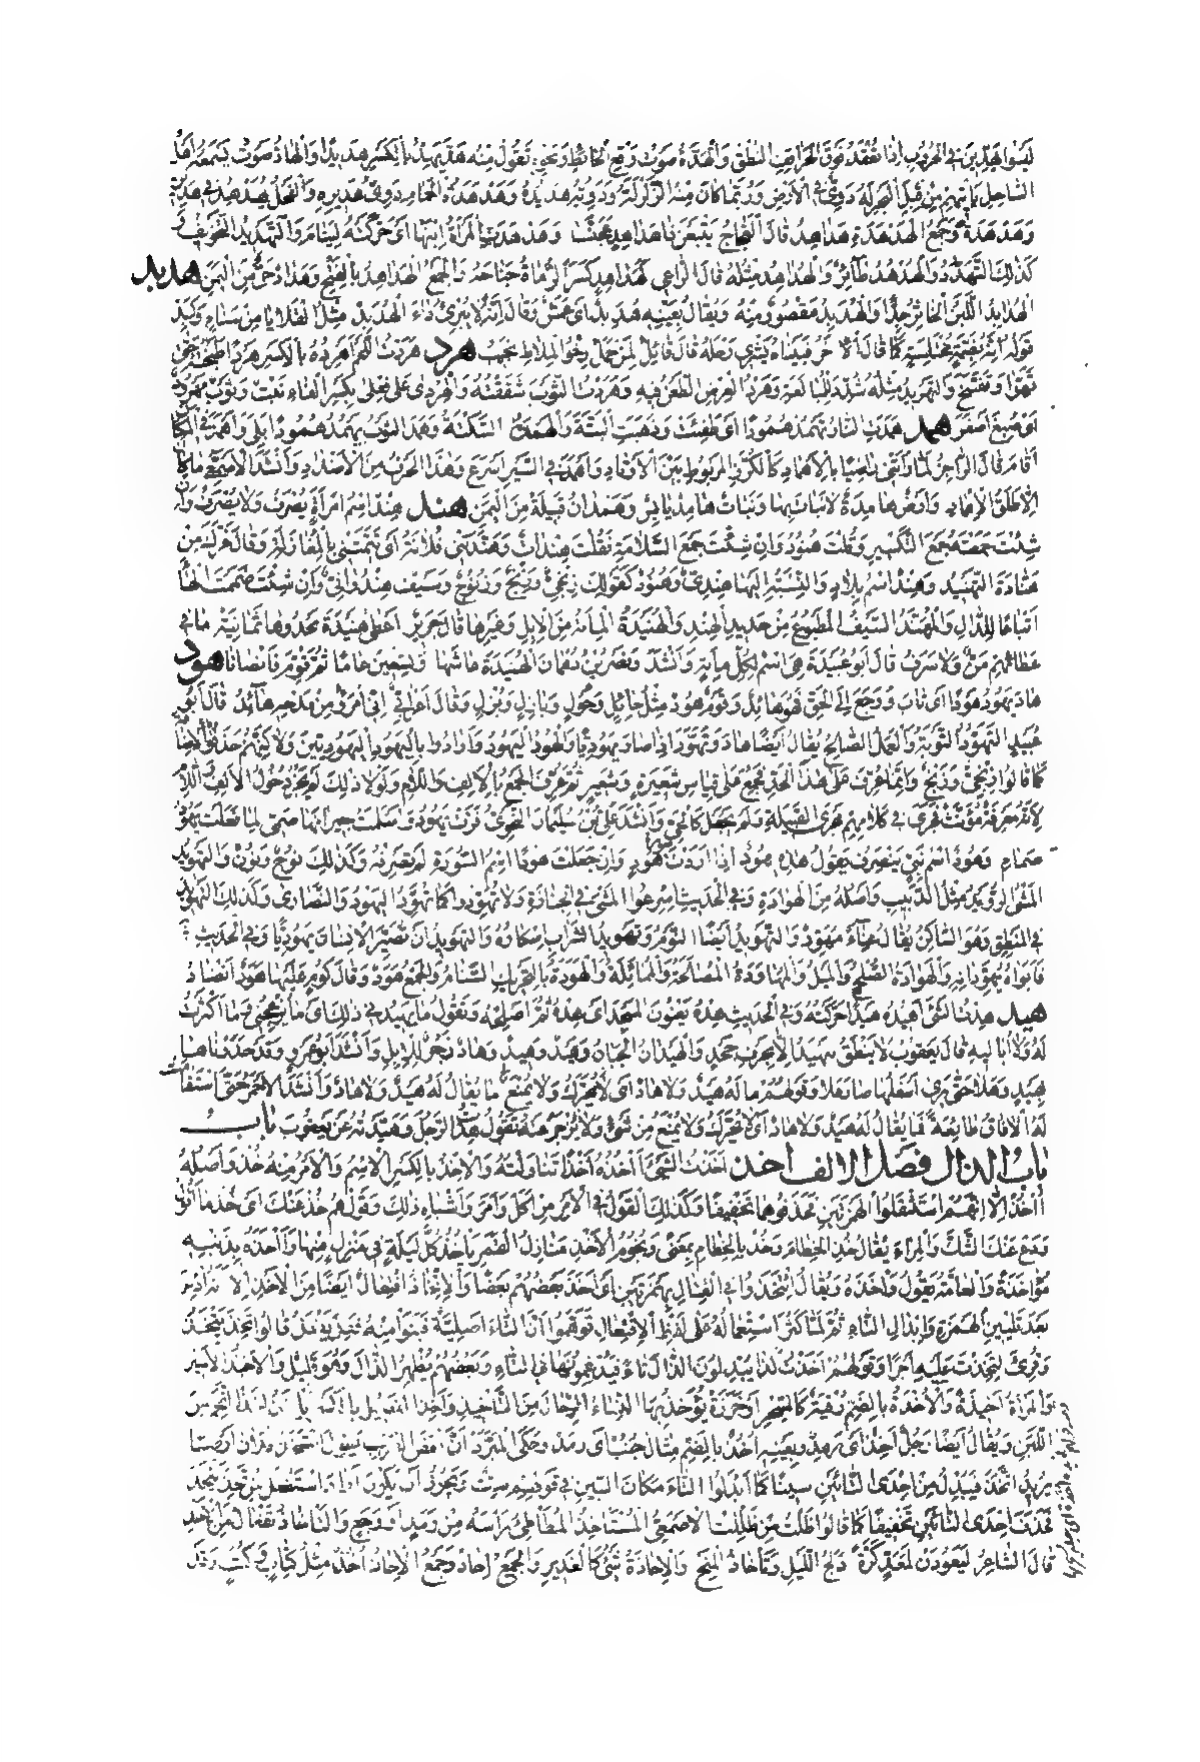 ليسوا بهدين في الحروب إذا تعقد فوق الحراقف النطق والهدة صوت وقع الحائط ونحوه تقول منه هد يهد بالكسر هديدا والهاد صوت يسمعه أهل
الساحل يأتيهم من قبل البحر له دوي في الأرض وربما كان منه الزلزلة ودويه هديده وهدهدة الحمام دوي هديره والفحل يهدهد في هديره
وهدهدة وجمع الهدهدة هداهد قال العجاج يتبعن ذا هداهد عجنسا وهدهدت المرأة ابنها أي حركته لينام والتهديد التخويف و
كذلك التهدد والهدهد طائر والهداهد مثله قال الراعي كهداهد كسر الرماة جناحه والجمع الهداهد بالفتح وهداد حي من اليمن هدبد
الهدابد اللبن الخاثر جدا والهدبد مقصور منه ويقال بعينه هدبد أي عمش وقال إنه لا يبرئ داء الهدبد مثل القلايا من سنام وكبد
قوله إنه بضمة مختلسة كما قال الآخر فبيناه يشري رحله قال قائل لمن جمل رخو الملاط نجيب هرد هردت اللحم أهرده بالكسر هردا طبخته حتى
تهرأ وتفسخ والتهريد مثله شدد للمبالغة وهرد العرض الطعن فيه وهردت الثوب شققته والهردى على فعلى بكسر الفاء نبت وثوب مهرود
أي صبغ أصفر همد همدت النار تهمد همودا أي طفئت وذهبت البتة والهمدة السكتة وهمد الثوب يهمد همودا بلي وأهمد في المكان
أقام قال الراجز لما رأتني راضيا بالإهماد كالكرز المربوط بين الأوتاد وأهمد في السير أسرع وهذا الحرف من الأضداد وأنشد الأصمعي ما كان
إلا طلق الإهماد وأرض هامدة لا نبات بها ونبات هامد يابس وهمدان قبيلة من اليمن هند هند اسم امرأة يصرف ولا يصرف وإن
شئت جمعته جمع التكسير وقلت هنود وإن شئت جمع السلامة فقلت هندات وهندتني فلانة أي تيمتني بالمغازلة وقال غرك من
هنادة التهنيد وهند اسم بلاد والنسبة إليها هندي وهنود كقولك زنجي وزنج وزنوج وسيف هندواني وإن شئت ضممت الهاء
اتباعا للدال والمهند السيف المطبوع من حديد الهند والهنيدة المائة من الإبل وغيرها قال جرير أعطى هنيدة يحدوها ثمانية ما في
عطائهم من ولا سرف قال أبو عبيدة هي اسم لكل مائة وأنشد ونصر بن دهمان الهنيدة عاشها وتسعين عاما ثم قوم فانصاتا هود
هاد يهود هودا أي تاب ورجع إلى الحق فهو هائد وقوم هود مثل حائل وحول وبازل وبزل وقال أعرابي إني امرؤ من مدحه هائد قال أبو
عبيد التهود التوبة والعمل الصالح يقال أيضا هاد وتهود إذا صار يهوديا والهود اليهود وأرادوا باليهود اليهوديين ولكنهم حذفوا ياء الإضافة
كما قالوا زنجي وزنج وإنما عرف على هذا الحد فجمع على قياس شعيرة وشعير ثم عرف الجمع بالألف واللام ولولا ذلك لم يجز دخول الألف واللام
لأنه معرفة مؤنث فجرى في كلامهم مجرى القبيلة ولم يجعل كالحي وأنشد علي بن سليمان النحوي فرت يهود وأسلمت جيرانها صمي لما فعلت يهود
صمام وهود اسم نبي ينصرف يقول هذه هود إذا أردت سورة هود وإن جعلت هودا اسم السورة لم تصرفه وكذلك نوح ونون والتهويد
المشي الرويد مثل الدبيب وأصله من الهوادة وفي الحديث أسرعوا المشي في الجنازة ولا تهودوا كما تهود اليهود والنصارى وكذلك التهويد
في المنطق وهو الساكن يقال غناء مهود والتهويد أيضا النوم وتهويد الشراب إسكاره والتهويد أن تصير الإنسان يهوديا وفي الحديث
فأبواه يهودانه والهوادة الصلح والميل والمهاودة المصالحة والممائلة والهودة بالتحريك السنام والجمع هود وقال كوم عليها هود أنضاد
هيد هدت الشيء أهيده هيدا حركته وفي الحديث هده يعنون المسجد أي هده ثم أصلحه وتقول ما يهيدني ذلك أي ما يزعجني وما أكترث
له ولا أباليه قال يعقوب لا ينطق بيهيد إلا بحرف جحد والهيدان الجبان وهيد وهيد وهاد زجر للإبل وأنشد أبو عمرو وقد حدوناها
بهيد وهلا حتى يرى أسفلها صار علا وقولهم ما له هيد ولا هاد أي لا يحرك ولا يمنع ما يقال له هيد ولا هاد وأنشد الأحمر حتى استقامت
له الآفاق طائعة فما يقال له هيد ولا هاد أي لا يحرك ولا يمنع من شيء ولا يزجر عنه تقول هدت الرجل وهيدته عن يعقوب باب
باب الذال فصل الألف أخذ أخذت الشيء آخذه أخذا تناولته والأخذ بالكسر الاسم والأمر منه خذ وأصله
أأخذ إلا أنهم استثقلوا الهمزتين فحذفوهما تخفيفا وكذلك القول في الأمر من أكل وأمر وأشباه ذلك وقولهم خذ عنك أي خذ ما أقول
ودع عنك الشك والمراء يقال خذ الخطام وخذ بالخطام بمعنى ونجوم الأخذ منازل القمر يأخذ كل ليلة في منزل منها وآخذه بذنبه
مؤاخذة والعامة تقول وأخذه ويقال ائتخذوا في القتال بهمزتين أي أخذ بعضهم بعضا والاتخاذ افتعال أيضا من الأخذ إلا أنه أدغم
بعد تليين الهمزة وإبدال التاء ثم لما كثر استعماله على لفظ الافتعال توهموا أن التاء أصلية فبنوا منه فعل يفعل قالوا تخذ يتخذ
وقرئ لتخذت عليه أجرا وقولهم أخذت كذا يبدلون الذال تاء فيدغمونها في التاء وبعضهم يظهر الذال وهو قليل والأخيذ الأسير
والمرأة أخيذة والأخذة بالضم رقية كالسحر أو خرزة يؤخذ بها النساء الرجال من التأخيذ
اللبن ويقال أيضا رجل أخذ أي رمد وبعينه أخذ بالضم مثال جنب أي رمد وحكى المبرد أن بعض العرب يقول استخذ فلان أرضا
يريد اتخذ فيبدل من إحدى التائين سينا كما أبدلوا التاء مكان السين في قولهم ست ويجوز أن يكون أراد استفعل من تخذ يتخذ
فحذف إحدى التائين تخفيفا كما قالوا ظلت من ظللت الأصمعي المستأخذ المطأطئ رأسه من رمد أو وجع والتأخاذ تفعال من الأخذ
قال الشاعر ليعودن لمعد كرة دلج الليل وتأخاذ المنح والإخاذة شيء كالغدير والجمع إخاذ وجمع الإخاذ أخذ مثل كتاب وكتب وقد